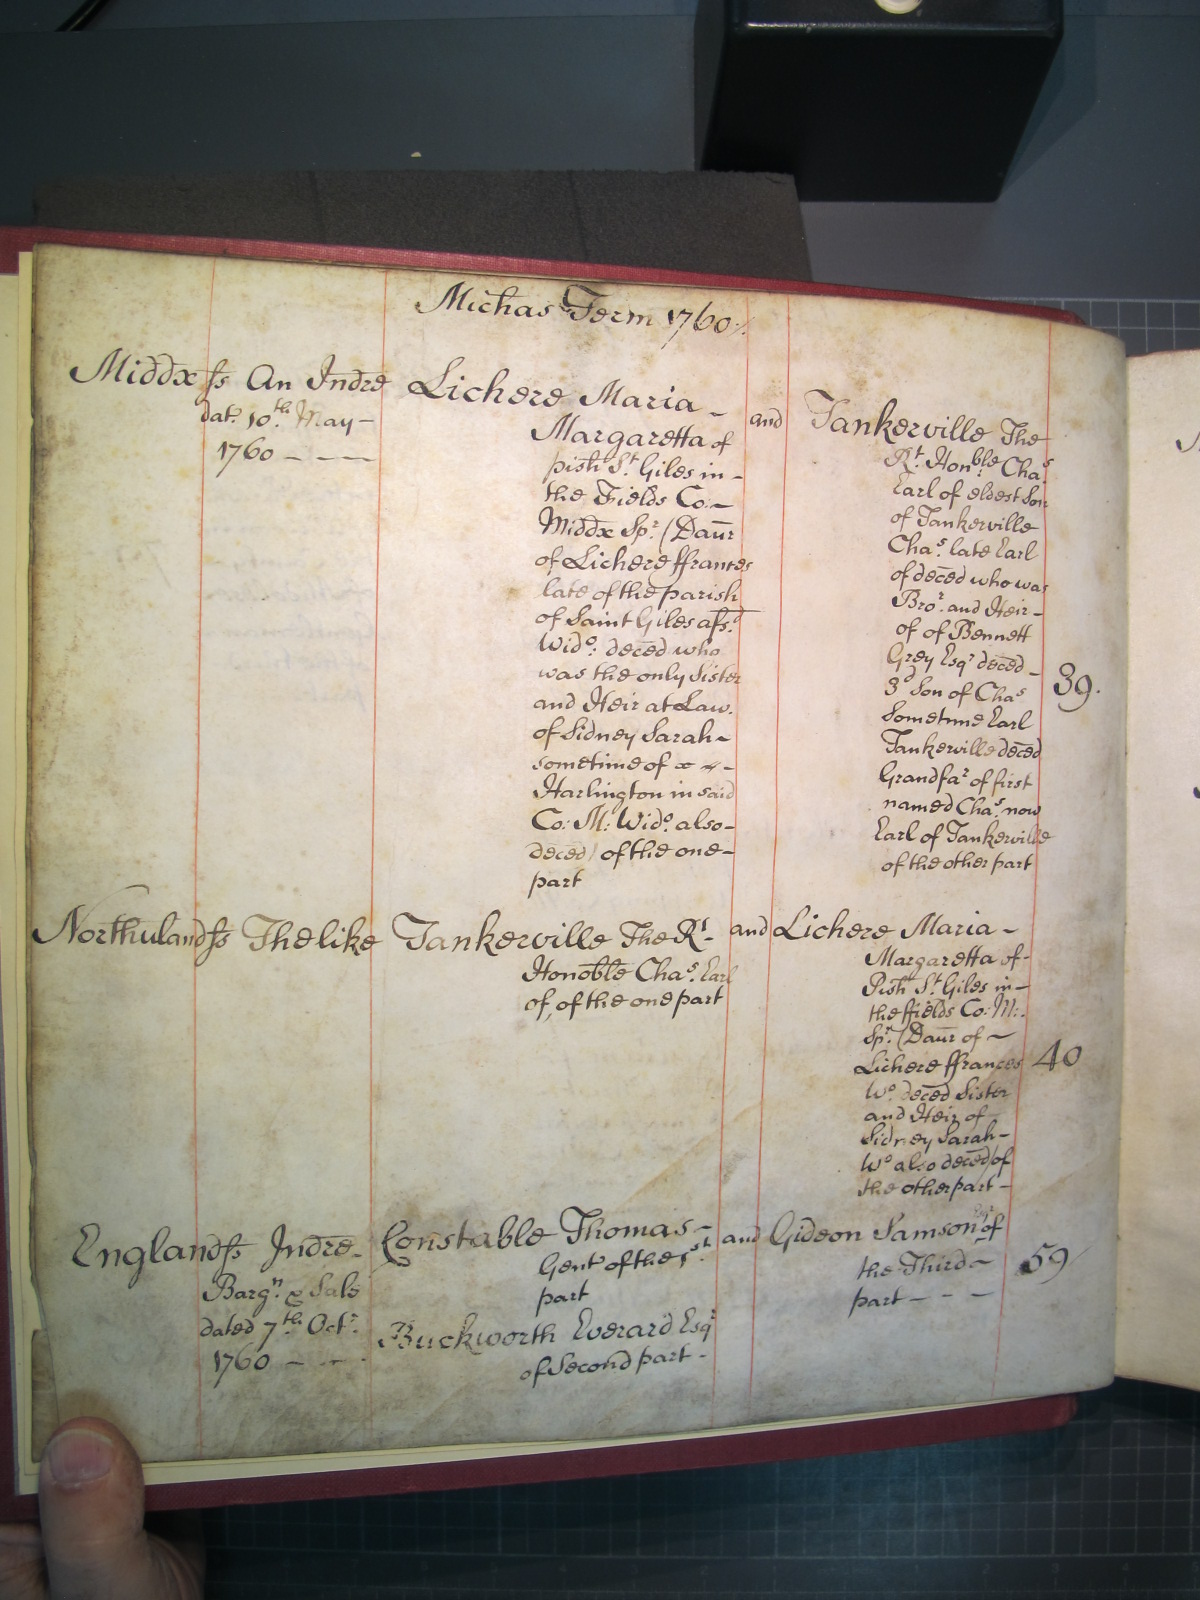 Michas Term 1760
Middx ss An Indre
dat: 10th May
1760
Lichere Maria
Margaretta of
pish St Giles in
the Fields Co:
Middx Spr (Daur
of Lichere ffrances
late of the parish
of Saint Giles afsd
Wido: deced who
was the only Sister
and Heir at Law.
of Sidney Sarah
sometime of x
Harlington in said
Co: M: Wido. also
deced) of the one
part
and
Tankerville The
Rt. Honble Chas
Earl of eldest Son
of Tankerville
Chas. late Earl
of deced who was
Bror. and Heir
of of Bennett
Grey Esqr deced
3d Son of Chas
Sometime Earl
Tankerville deced
Grandfar of first
named Chas. now
Earl of Tankerville
of the other part
39.
Northuland ss The like
Tankerville The Rt
Honoble Chas. Earl
of, of the one part
and
Lichere Maria
Margaretta of
Pish St Giles in
the ffields Co: M:
Spr. (Daur of
Lichere ffrances
Wo. deced Sister
and Heir of
Sidney Sarah
Wo also deced) of
the other part
40
England ss Indre
Bargn & Sale
dated 7th Octr.
1760
Constable Thomas
Gent of the 1st
part
Buckworth Everard Esqr
of Second part
and
Gideon Samson Esqr of
the Third
part
59